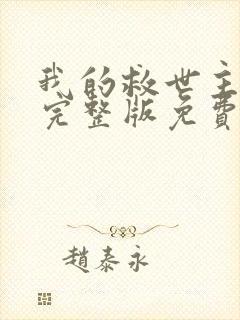 我的救世主
完整版免費
趙泰永